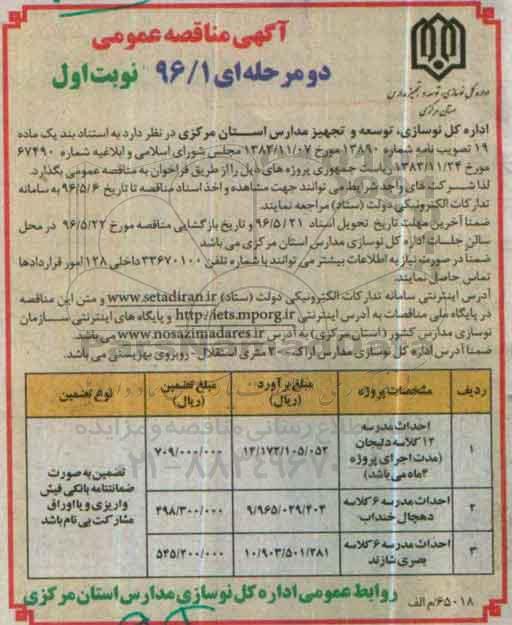 آگهی مناقصه عمومی
دو مرحله ای ۹۶/۱ نوبت اول
اداره کل نوسازی، توسعه و تجهیز مدارس
استان مرکزی
اداره کل نوسازی، توسعه و تجهیز مدارس استان مرکزی در نظر دارد به استناد بند یک ماده
۱۹ تصویب نامه شماره ۱۳۸۹۰ مورخ ۱۳۸۴/۱۱/۰۷ مجلس شورای اسلامی و ابلاغیه شماره ۶۷۴۹۰
مورخ ۱۳۸۳/۱۱/۲۴ ریاست جمهوری پروژه های ذیل را از طریق فراخوان به مناقصه عمومی بگذارد.
لذا شرکت های واجد شرایط می توانند جهت مشاهده و اخذ اسناد مناقصه تا تاریخ ۹۶/۵/۶ به سامانه
تدارکات الکترونیکی دولت (ستاد) مراجعه نمایند.
ضمنا آخرین مهلت تاریخ تحویل اسناد ۹۶/۵/۲۱ و تاریخ بازگشایی مناقصه مورخ ۹۶/۵/۲۲ در محل
سالن جلسات اداره کل نوسازی مدارس استان مرکزی می باشد
ضمنا در صورت نیاز به اطلاعات بیشتر می توانند با شماره تلفن ۳۳۶۷۰۱۰۰ داخلی ۱۲۸ امور قراردادها
تماس حاصل نمایند.
آدرس اینترنتی سامانه تدارکات الکترونیکی دولت (ستاد) www.setadiran.ir و متن این مناقصه
در پایگاه ملی مناقصات به آدرس اینترنتی http://iets.mporg.ir و پایگاه های اینترنتی سازمان
نوسازی مدارس کشور (استان مرکزی) به آدرس www.nosazimadares.ir می باشد.
ضمنا آدرس اداره کل نوسازی مدارس اراک ۳۰ متری استقلال - روبروی بهزیستی می باشد.
ردیف مشخصات پروژه مبلغ برآورد (ریال) مبلغ تضمین (ریال) نوع تضمین
۱ احداث مدرسه ۱۲ کلاسه دلیجان (مدت اجرای پروژه ۴ ماه می باشد) ۱۴/۱۷۲/۱۰۵/۰۵۲ ۷۰۹/۰۰۰/۰۰۰
۲ احداث مدرسه ۶ کلاسه دهچال خنداب ۹/۹۶۵/۰۲۹/۴۰۳ ۴۹۸/۳۰۰/۰۰۰
۳ احداث مدرسه ۶ کلاسه بصری شازند ۱۰/۹۰۳/۵۰۱/۲۸۱ ۵۴۵/۲۰۰/۰۰۰
تضمین به صورت
ضمانتنامه بانکی فیش
واریزی و یا اوراق
مشارکت بی نام باشد
۶۵۰۱۸/م الف
روابط عمومی اداره کل نوسازی مدارس استان مرکزی